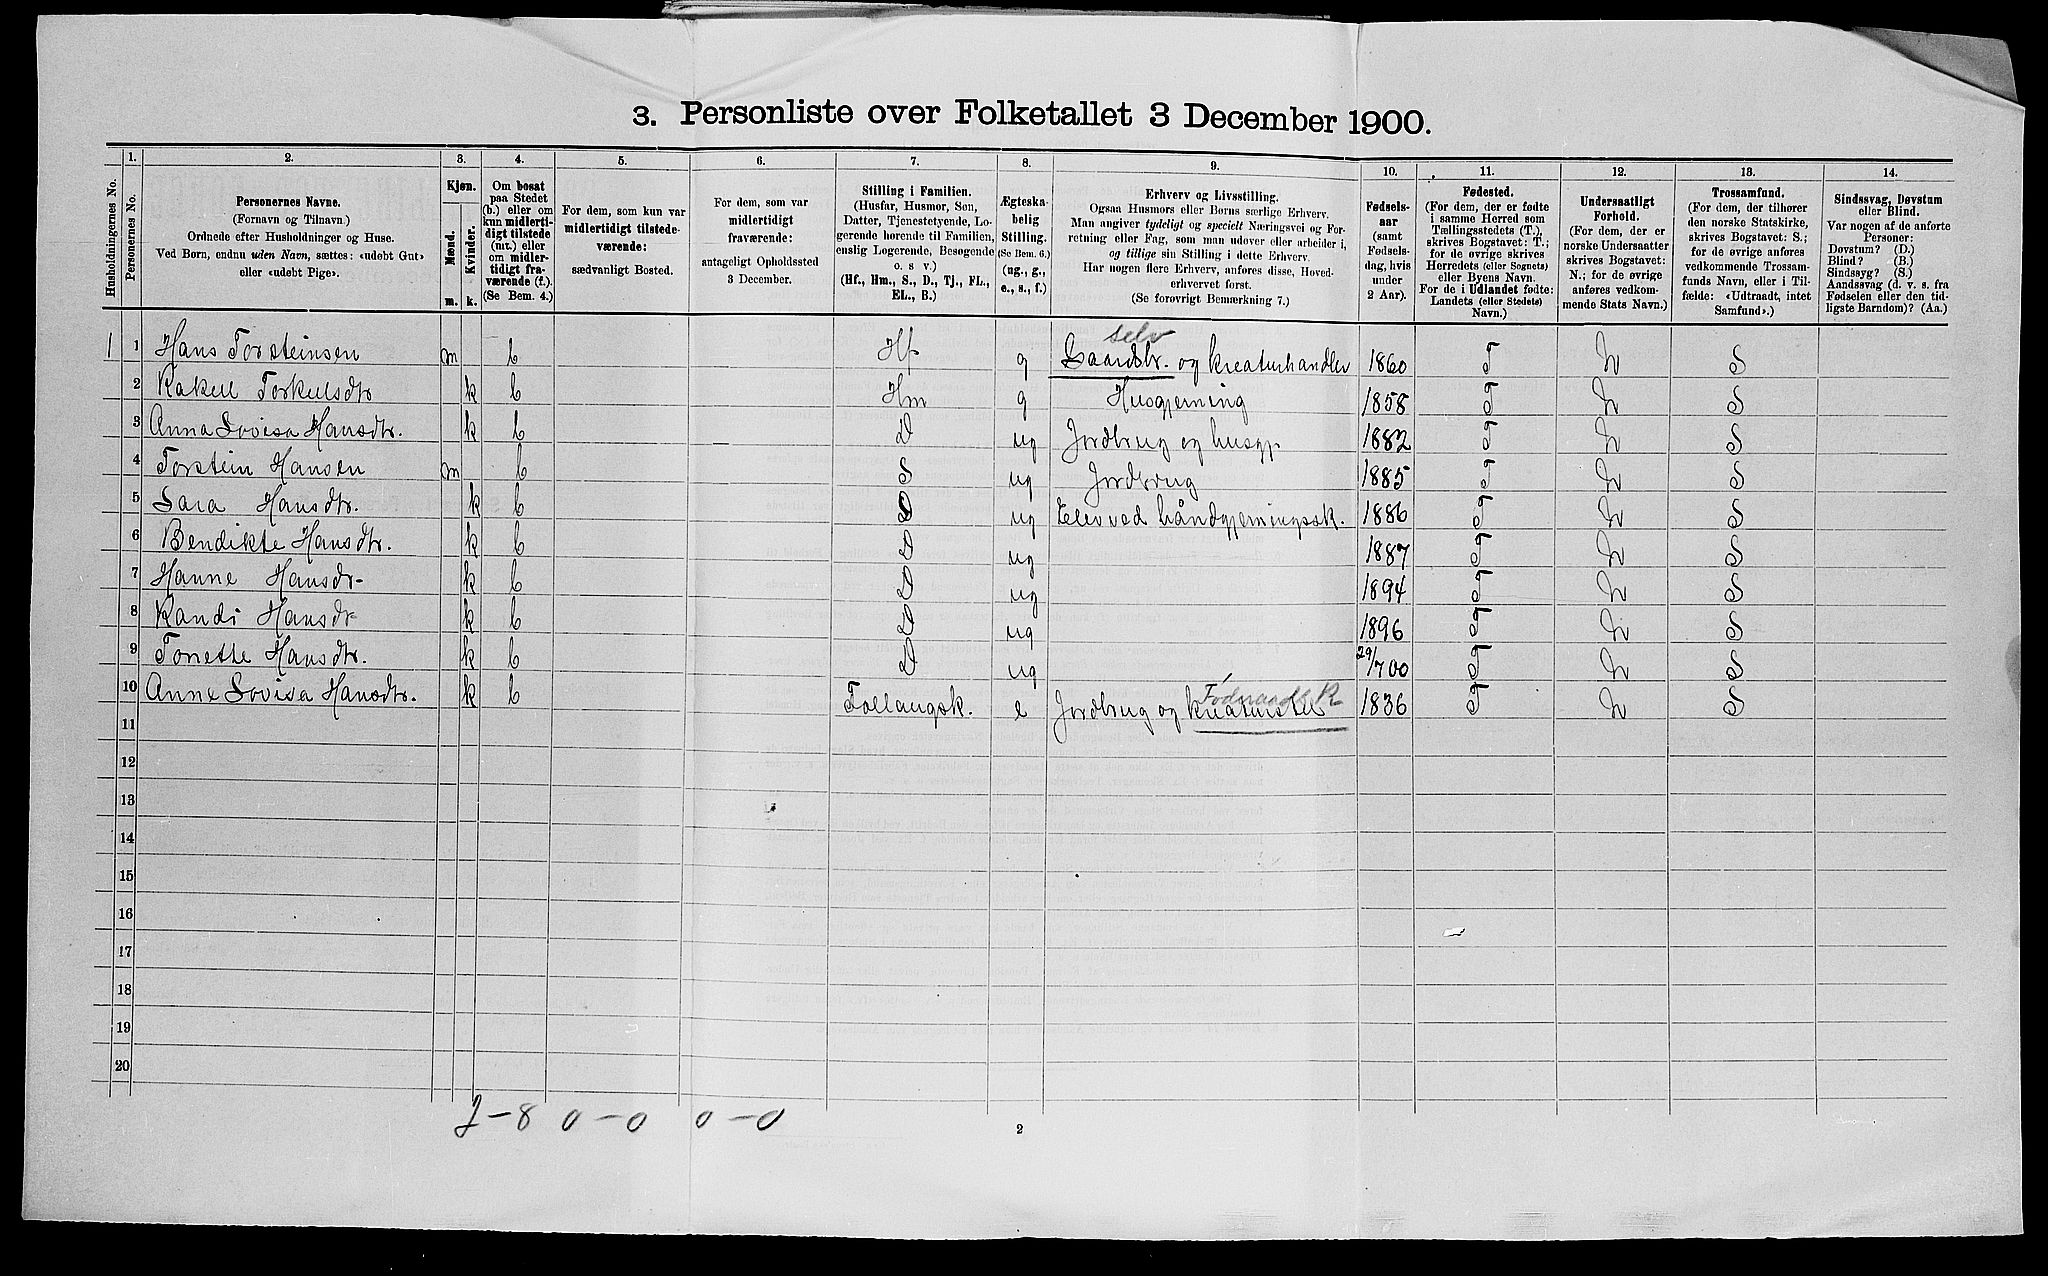 3. Personliste over Folketallet 3 December 1900.
1. 2. 3. 4. 5. 6. 7. 8. 9. 10. 11. 12. 13. 14.
Husholdningernes No.
Personernes No.
Personernes Navne.
(Fornavn og Tilnavn.)
Ordnede efter Husholdninger og Huse.
Ved Børn, endnu uden Navn, sættes: «udøbt Gut»
eller «udøbt Pige».
Kjøn.
Mænd.
Kvinder.
m. k.
Om bosat
paa Stedet
(b.) eller om
kun midlerti-
digt tilstede
(mt.) eller
om midler-
tidigt fra-
værende (f.).
(Se Bem. 4.)
For dem, som kun var
midlertidigt tilstede-
værende:
sædvanligt Bosted.
For dem, som var
midlertidigt
fraværende:
antageligt Opholdssted
3 December.
Stilling i Familien.
(Husfar, Husmor, Søn,
Datter, Tjenestetyende, Lo-
gerende hørende til Familien,
enslig Logerende, Besøgende
o. s v.)
(Hf., Hm., S., D., Tj., FL.,
EL., B.)
Ægteska-
belig
Stilling.
(Se Bem. 6.)
(ug., g.,
e., s., f.)
Erhverv og Livsstilling.
Ogsaa Husmors eller Børns særlige Erhverv.
Man angiver tydeligt og specielt Næringsvei og For-
retning eller Fag, som man udøver eller arbeider i,
og tillige sin Stilling i dette Erhverv.
Har nogen flere Erhverv, anføres disse, Hoved-
erhvervet først.
(Se forøvrigt Bemærkning 7.)
Fødsels-
aar
(samt
Fødsels-
dag, hvis
under
2 Aar).
Fødested.
(For dem, der er fødte
i samme Herred som
Tællingsstedets (T.),
skrives Bogstavet: T.;
for de øvrige skrives
Herredets (eller Sognets)
eller Byens Navn.
For de i Udlandet fødte:
Landets (eller Stedets)
Navn.)
Undersaatligt
Forhold.
(For dem, der er
norske Undersaatter
skrives Bogstavet:
N.; for de øvrige
anføres vedkom-
mende Stats Navn.)
Trossamfund.
(For dem, der tilhører
den norske Statskirke,
skrives Bogstavet: S.;
for de øvrige anføres
vedkommende Trossam-
funds Navn, eller i Til-
fælde: «Udtraadt, intet
Samfund».)
Sindssvag, Døvstum
eller Blind.
Var nogen af de anførte
Personer:
Døvstum? (D.)
Blind? (B.)
Sindssyg? (S.)
Aandssvag (d. v. s. fra
Fødselen eller den tid-
ligste Barndom)? (Aa.)
selv
1 1 Hans Torsteinsen m b Hf g Gaardbr. og kreaturhandler 1860 T N S
2 Rakell Torkelsdtr k b Hm g Husgjerning 1858 T N S
3 Anna Lovisa Hansdtr. k b D ug Jordbrug og husgj. 1882 T N S
4 Torstein Hansen m b S ug Jordbrug 1885 T N S
5 Sara Hansdtr. k b D ug Elev ved håndgjerningssk. 1886 T N S
6 Bendikte Hansdtr. k b D ug 1887 T N S
7 Hanne Hansdr- k b D ug 1894 T N S
8 Randi Hansdr k b D ug 1896 T N S
9 Tonette Hansdtr. k b D ug 29/7 00 T N S
Fødnaadsk
10 Anne Lovisa Hansdtr. k b Follaugsk. e Jordbrug og kreaturstel 1836 T N S
11
12
13
14
15
16
17
18
19
20
2-8 0-0 0-0
2